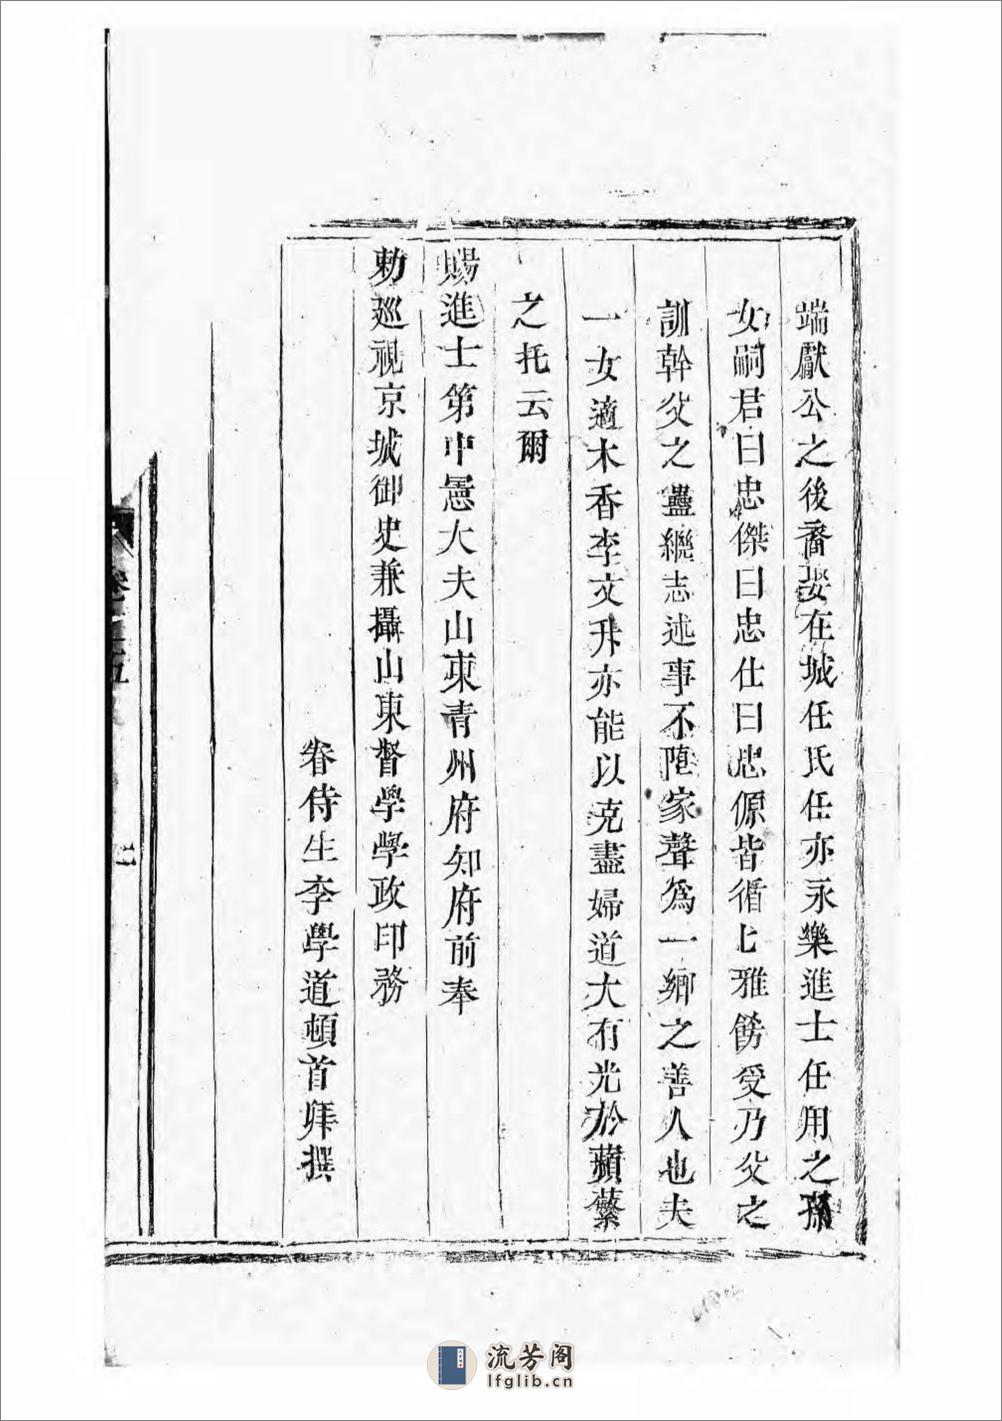 端獻公之後裔娶在城任氏任亦永樂進士任用之孫
女嗣君曰忠傑曰忠仕曰忠源皆循上雅飭受乃父之
訓幹父之蠱繼志述事不隳家聲爲一鄉之善人也夫
一女適木香李文升亦能以克盡婦道大有光於蘋蘩
之托云爾
賜進士第中憲大夫山東青州府知府前奉
勅巡視京城御史兼攝山東督學學政印務
眷侍生李學道頓首拜撰
卷 五
七
流芳阁
lfglib.cn